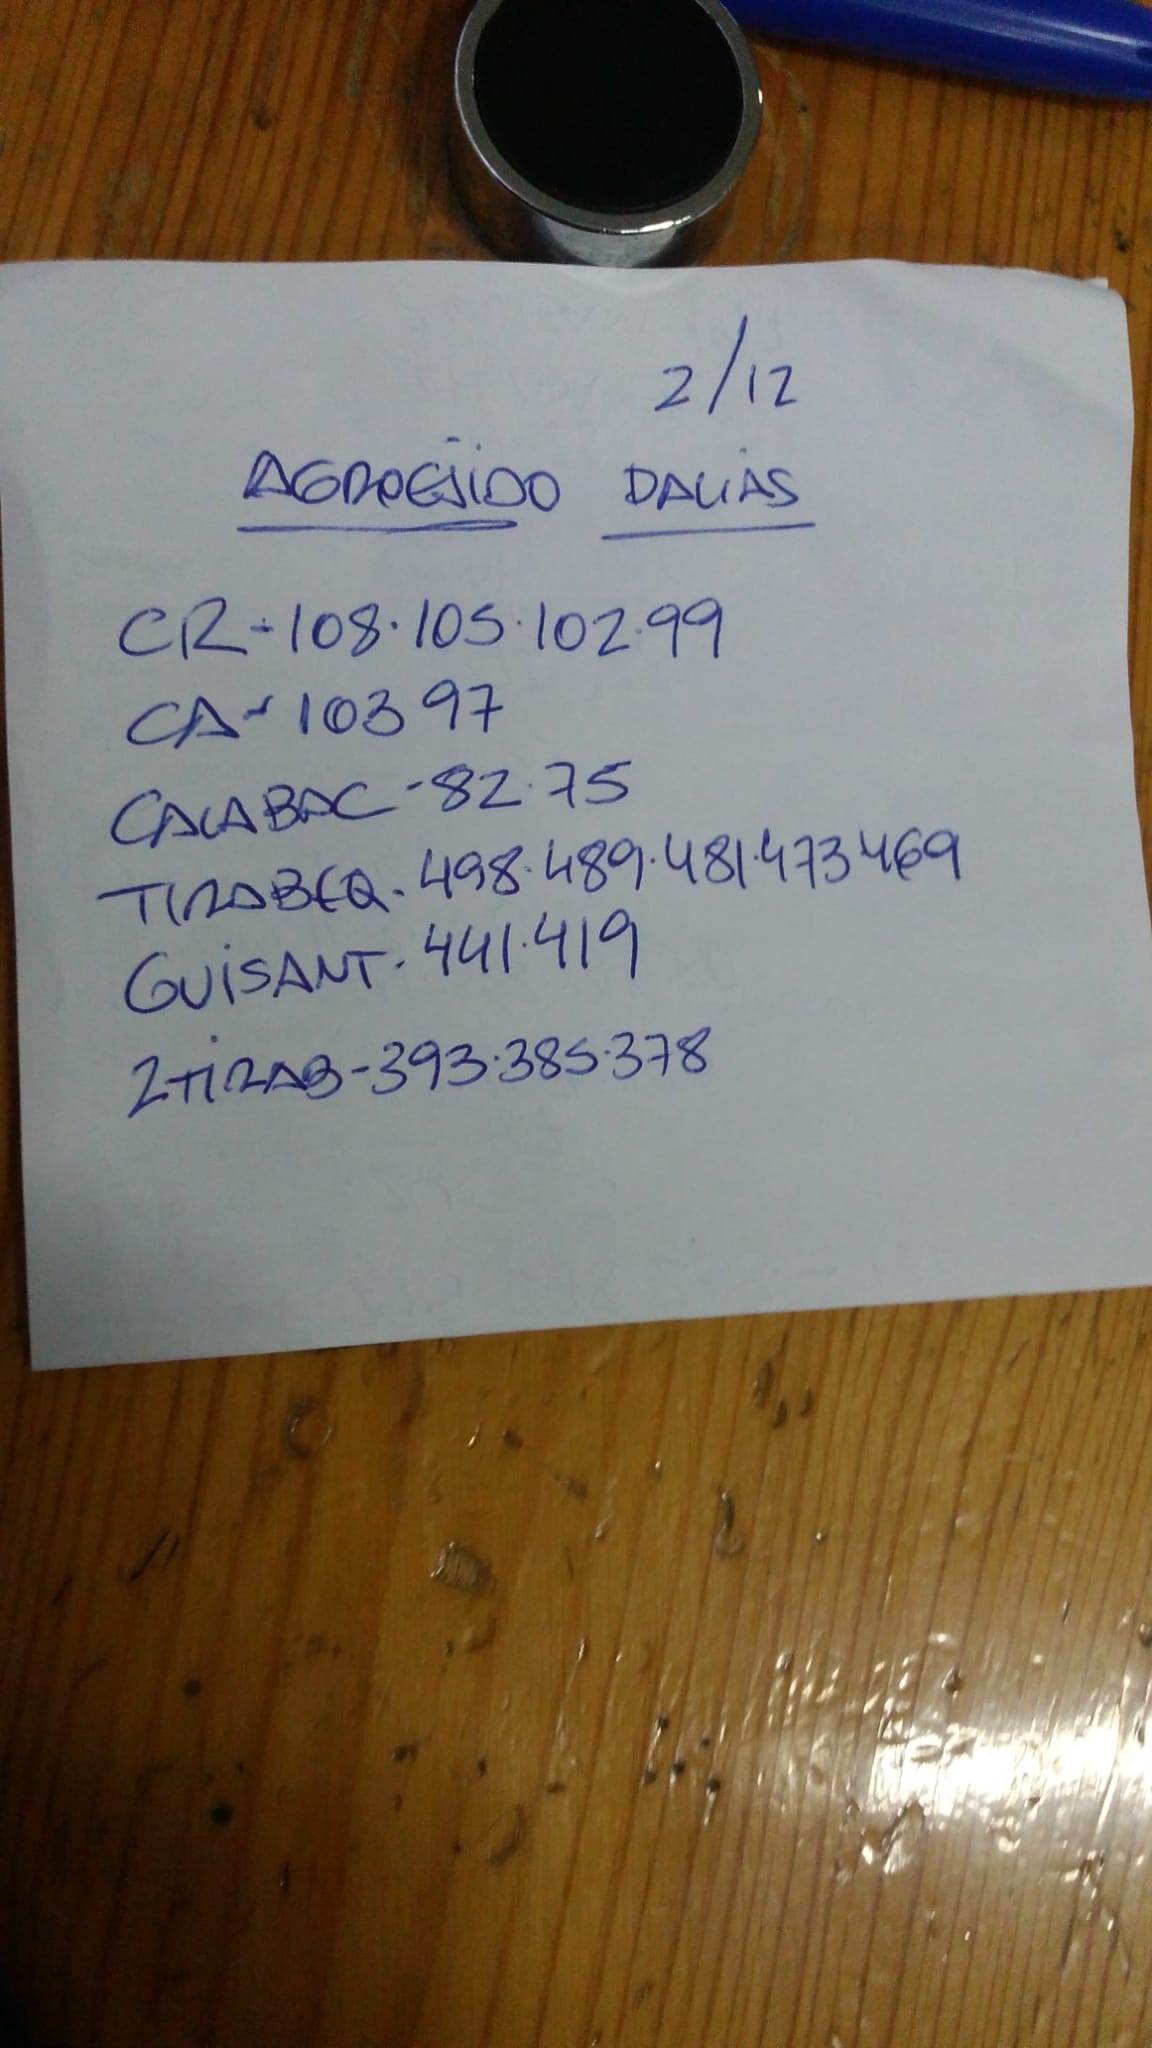 2/12
AGROEJIDO DALIAS
CR-108.105.102.99
CA-103 97
CALABAC-82.75
TIRABEQ.498.489.481.473 469
GUISANT.441.419
2TIRAB-393.385.378